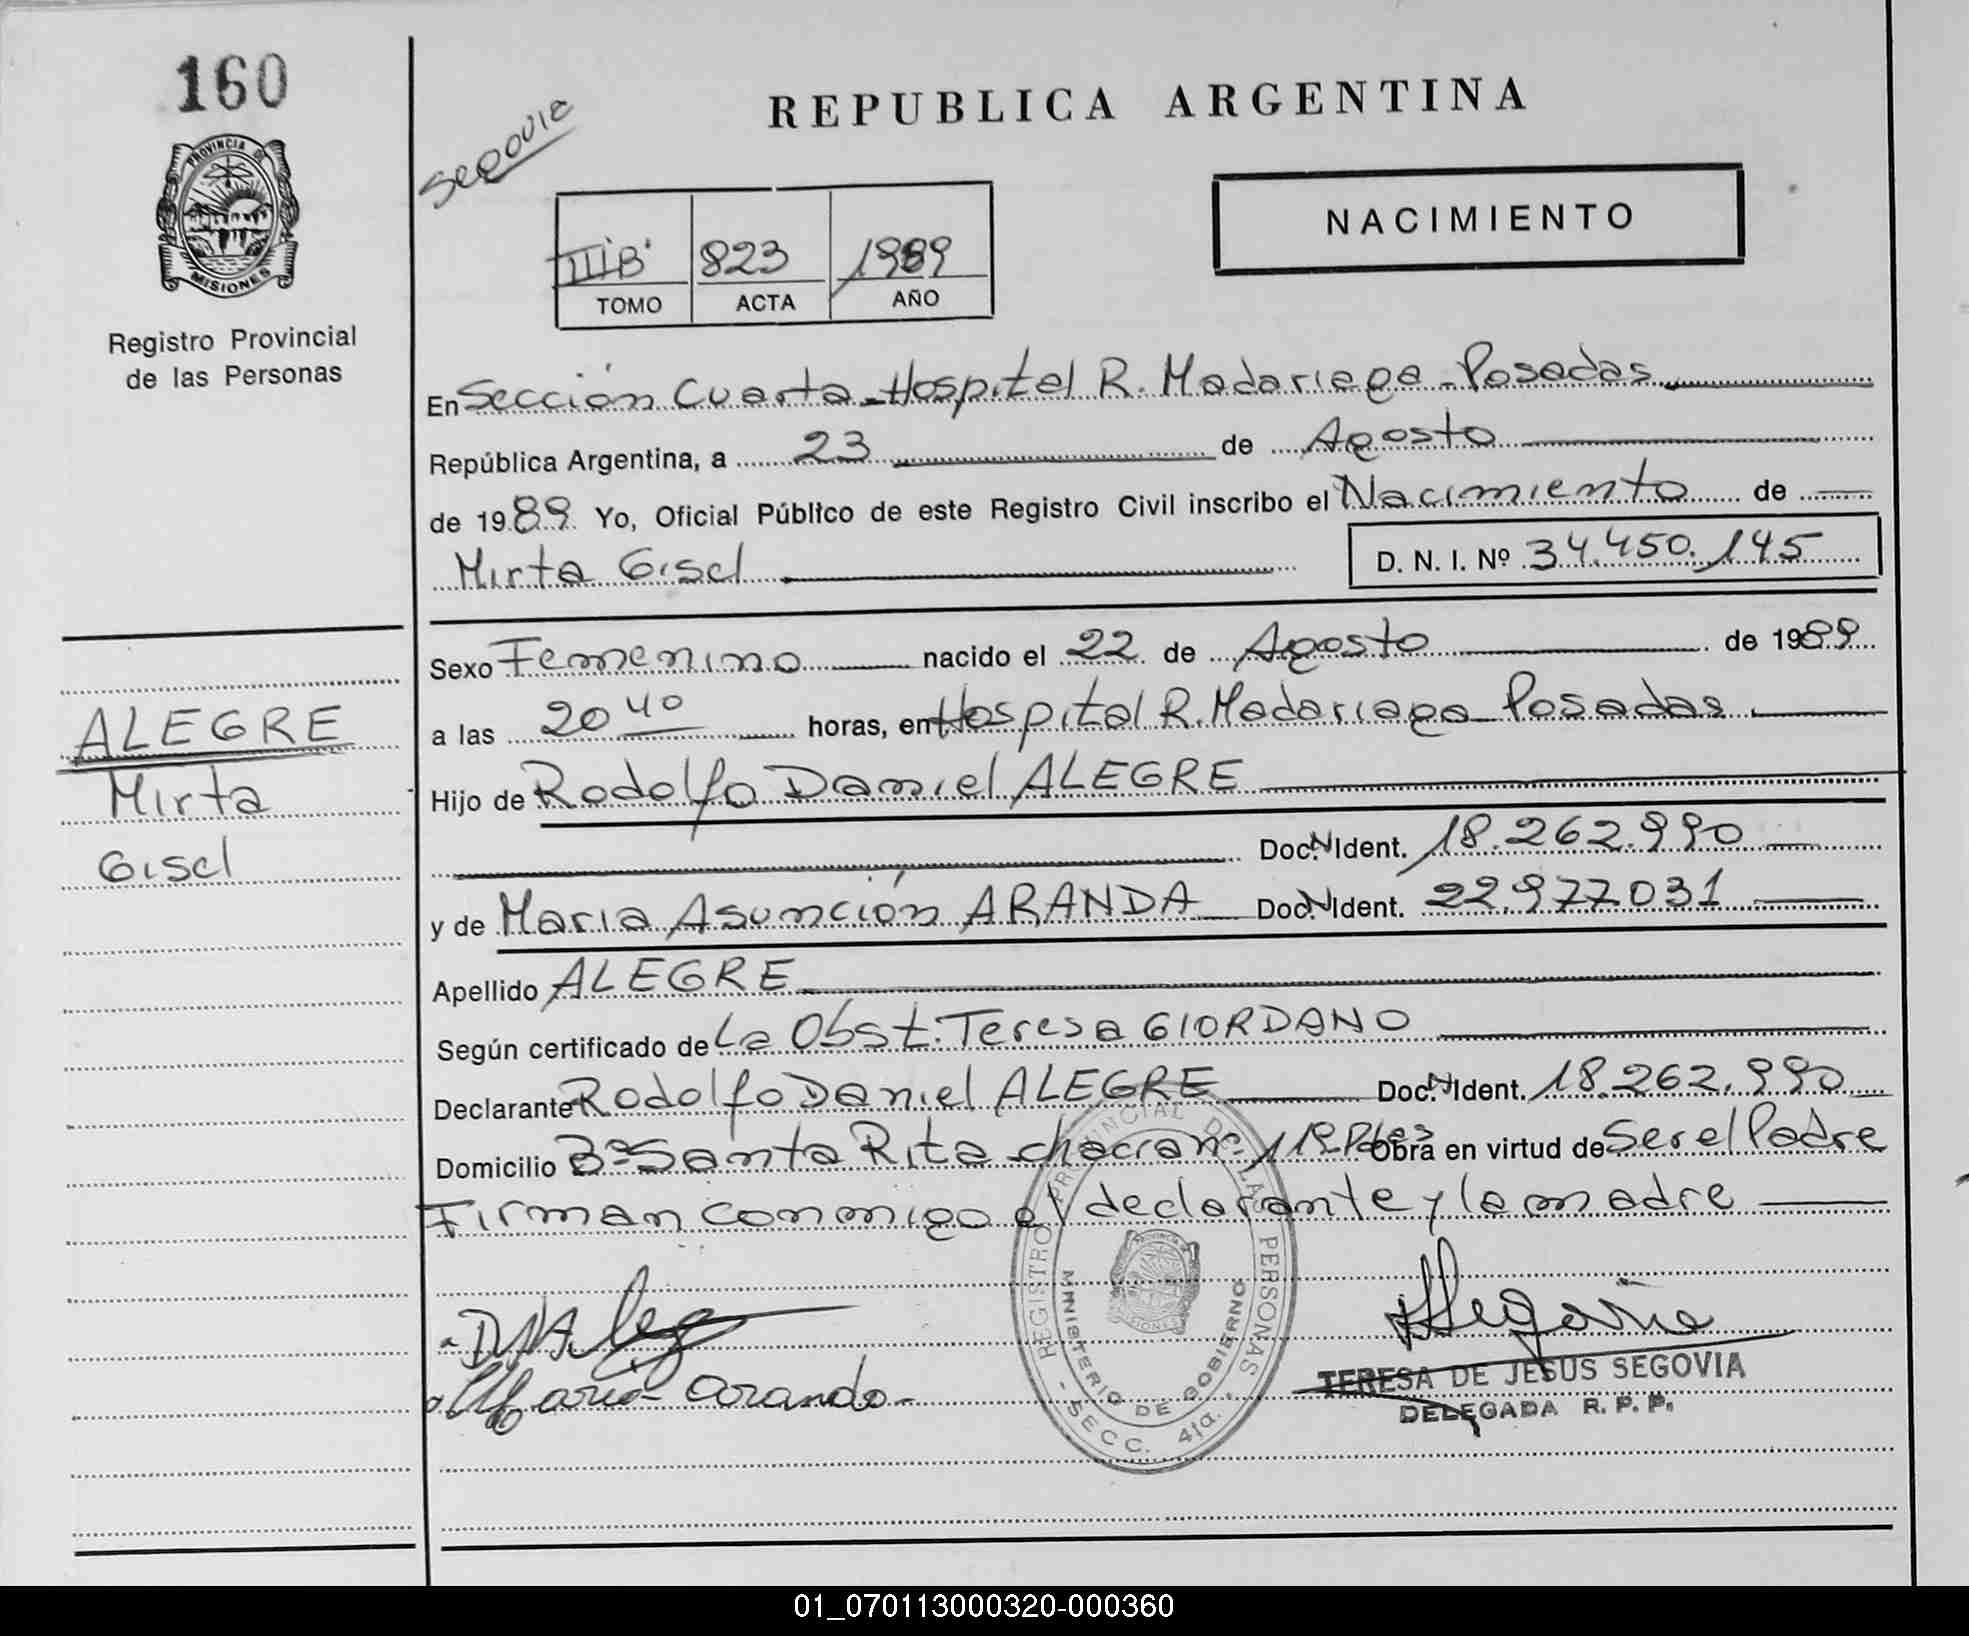 160
PROVINCIA DE
MISIONES
Registro Provincial
de las Personas
Segovia
REPUBLICA ARGENTINA
NACIMIENTO
III B' 823 1989
TOMO ACTA AÑO
En Sección Cuarta - Hospital R. Madariaga - Posadas
República Argentina, a 23 de Agosto
de 1989 Yo, Oficial Público de este Registro Civil inscribo el Nacimiento de
Mirta Gisel D. N. I. Nº 34.450.145
Sexo Femenino nacido el 22 de Agosto de 1989
a las 20 40 horas, en Hospital R. Madariaga - Posadas
ALEGRE
Mirta
Gisel
Hijo de Rodolfo Daniel ALEGRE
Doc. N Ident. 18.262.990
y de María Asunción ARANDA Doc. N Ident. 22.977.031
Apellido ALEGRE
Según certificado de La Obst. Teresa GIORDANO
Declarante Rodolfo Daniel ALEGRE Doc. N Ident. 18.262.990
Domicilio Bº Santa Rita chacra nº Obra en virtud de Ser el Padre
Firman conmigo el declarante y la madre
REGISTRO PROVINCIAL DE LAS PERSONAS
MINISTERIO DE GOBIERNO
- SECC. 4ta. -
Maria Aranda
TERESA DE JESUS SEGOVIA
DELEGADA R. P. P.
01_070113000320-000360